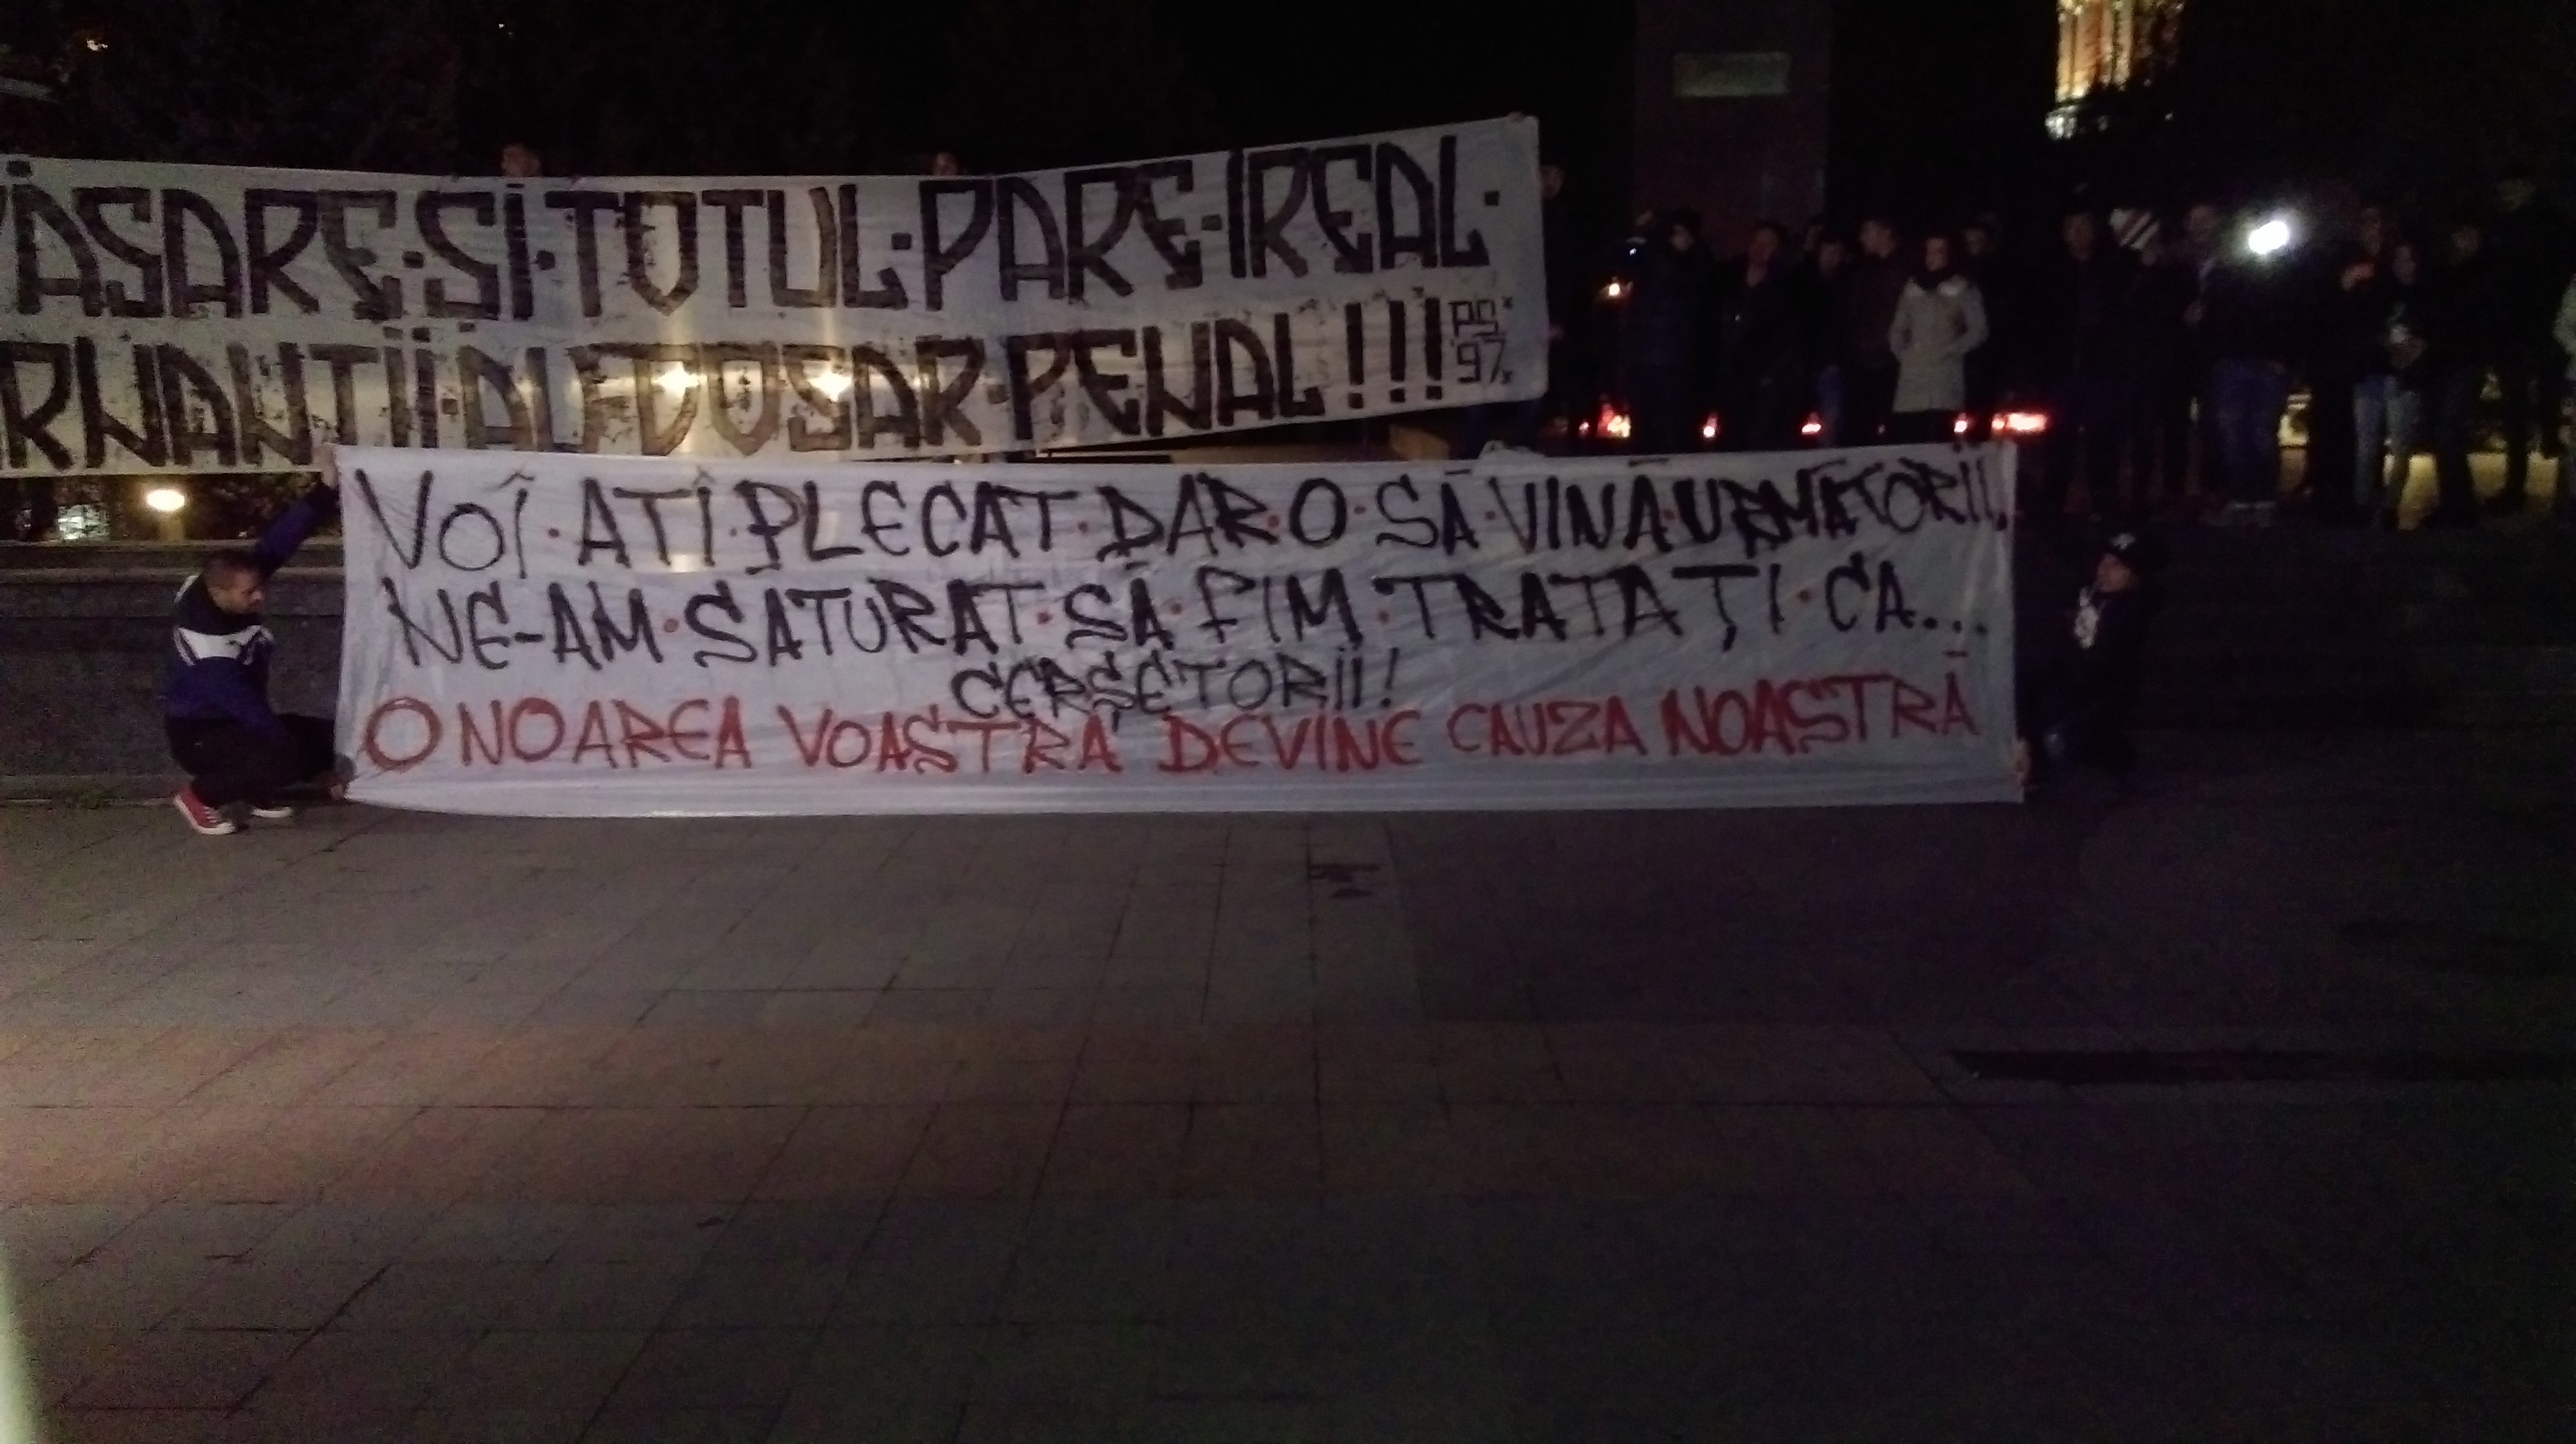 SI·TOTUL·PARE·IREAL·
DOSAR·PENAL!!!
PS
97
VOI·ATI·PLECAT·DAR·O·SĂ·VINĂ·URMĂTORII,
NE-AM·SĂTURAT·SĂ·FIM·TRATAȚI·CA...
CERȘETORII!
ONOAREA VOASTRĂ DEVINE CAUZA NOASTRĂ